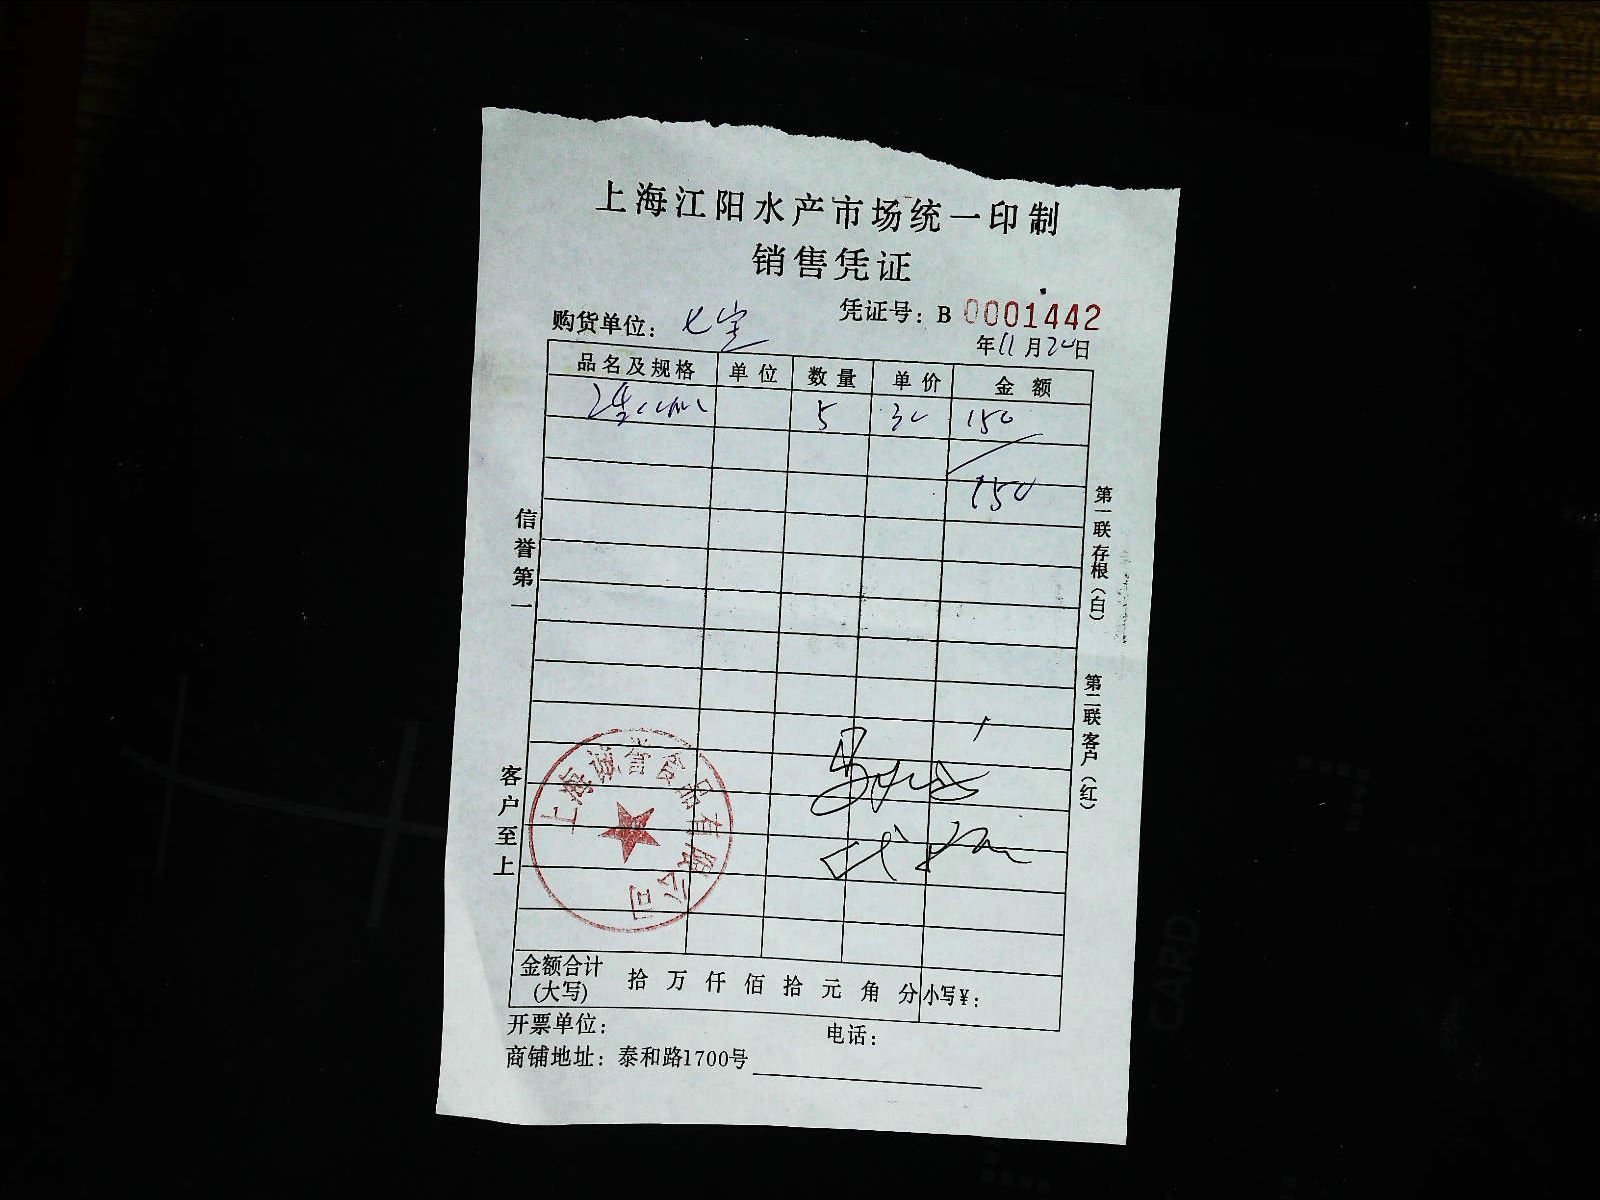 上海江阳水产市场统一印制
销售凭证
凭证号：B 0001442
购货单位：七宝
年11月20日
品名及规格 单位 数量 单价 金额
5 30 150
150
信誉第一
客户至上
第一联 存根（白）
第二联 客户（红）
上海诚誉食品有限公司
金额合计(大写) 拾 万 仟 佰 拾 元 角 分 小写¥：
开票单位： 电话：
商铺地址：泰和路1700号
CARD